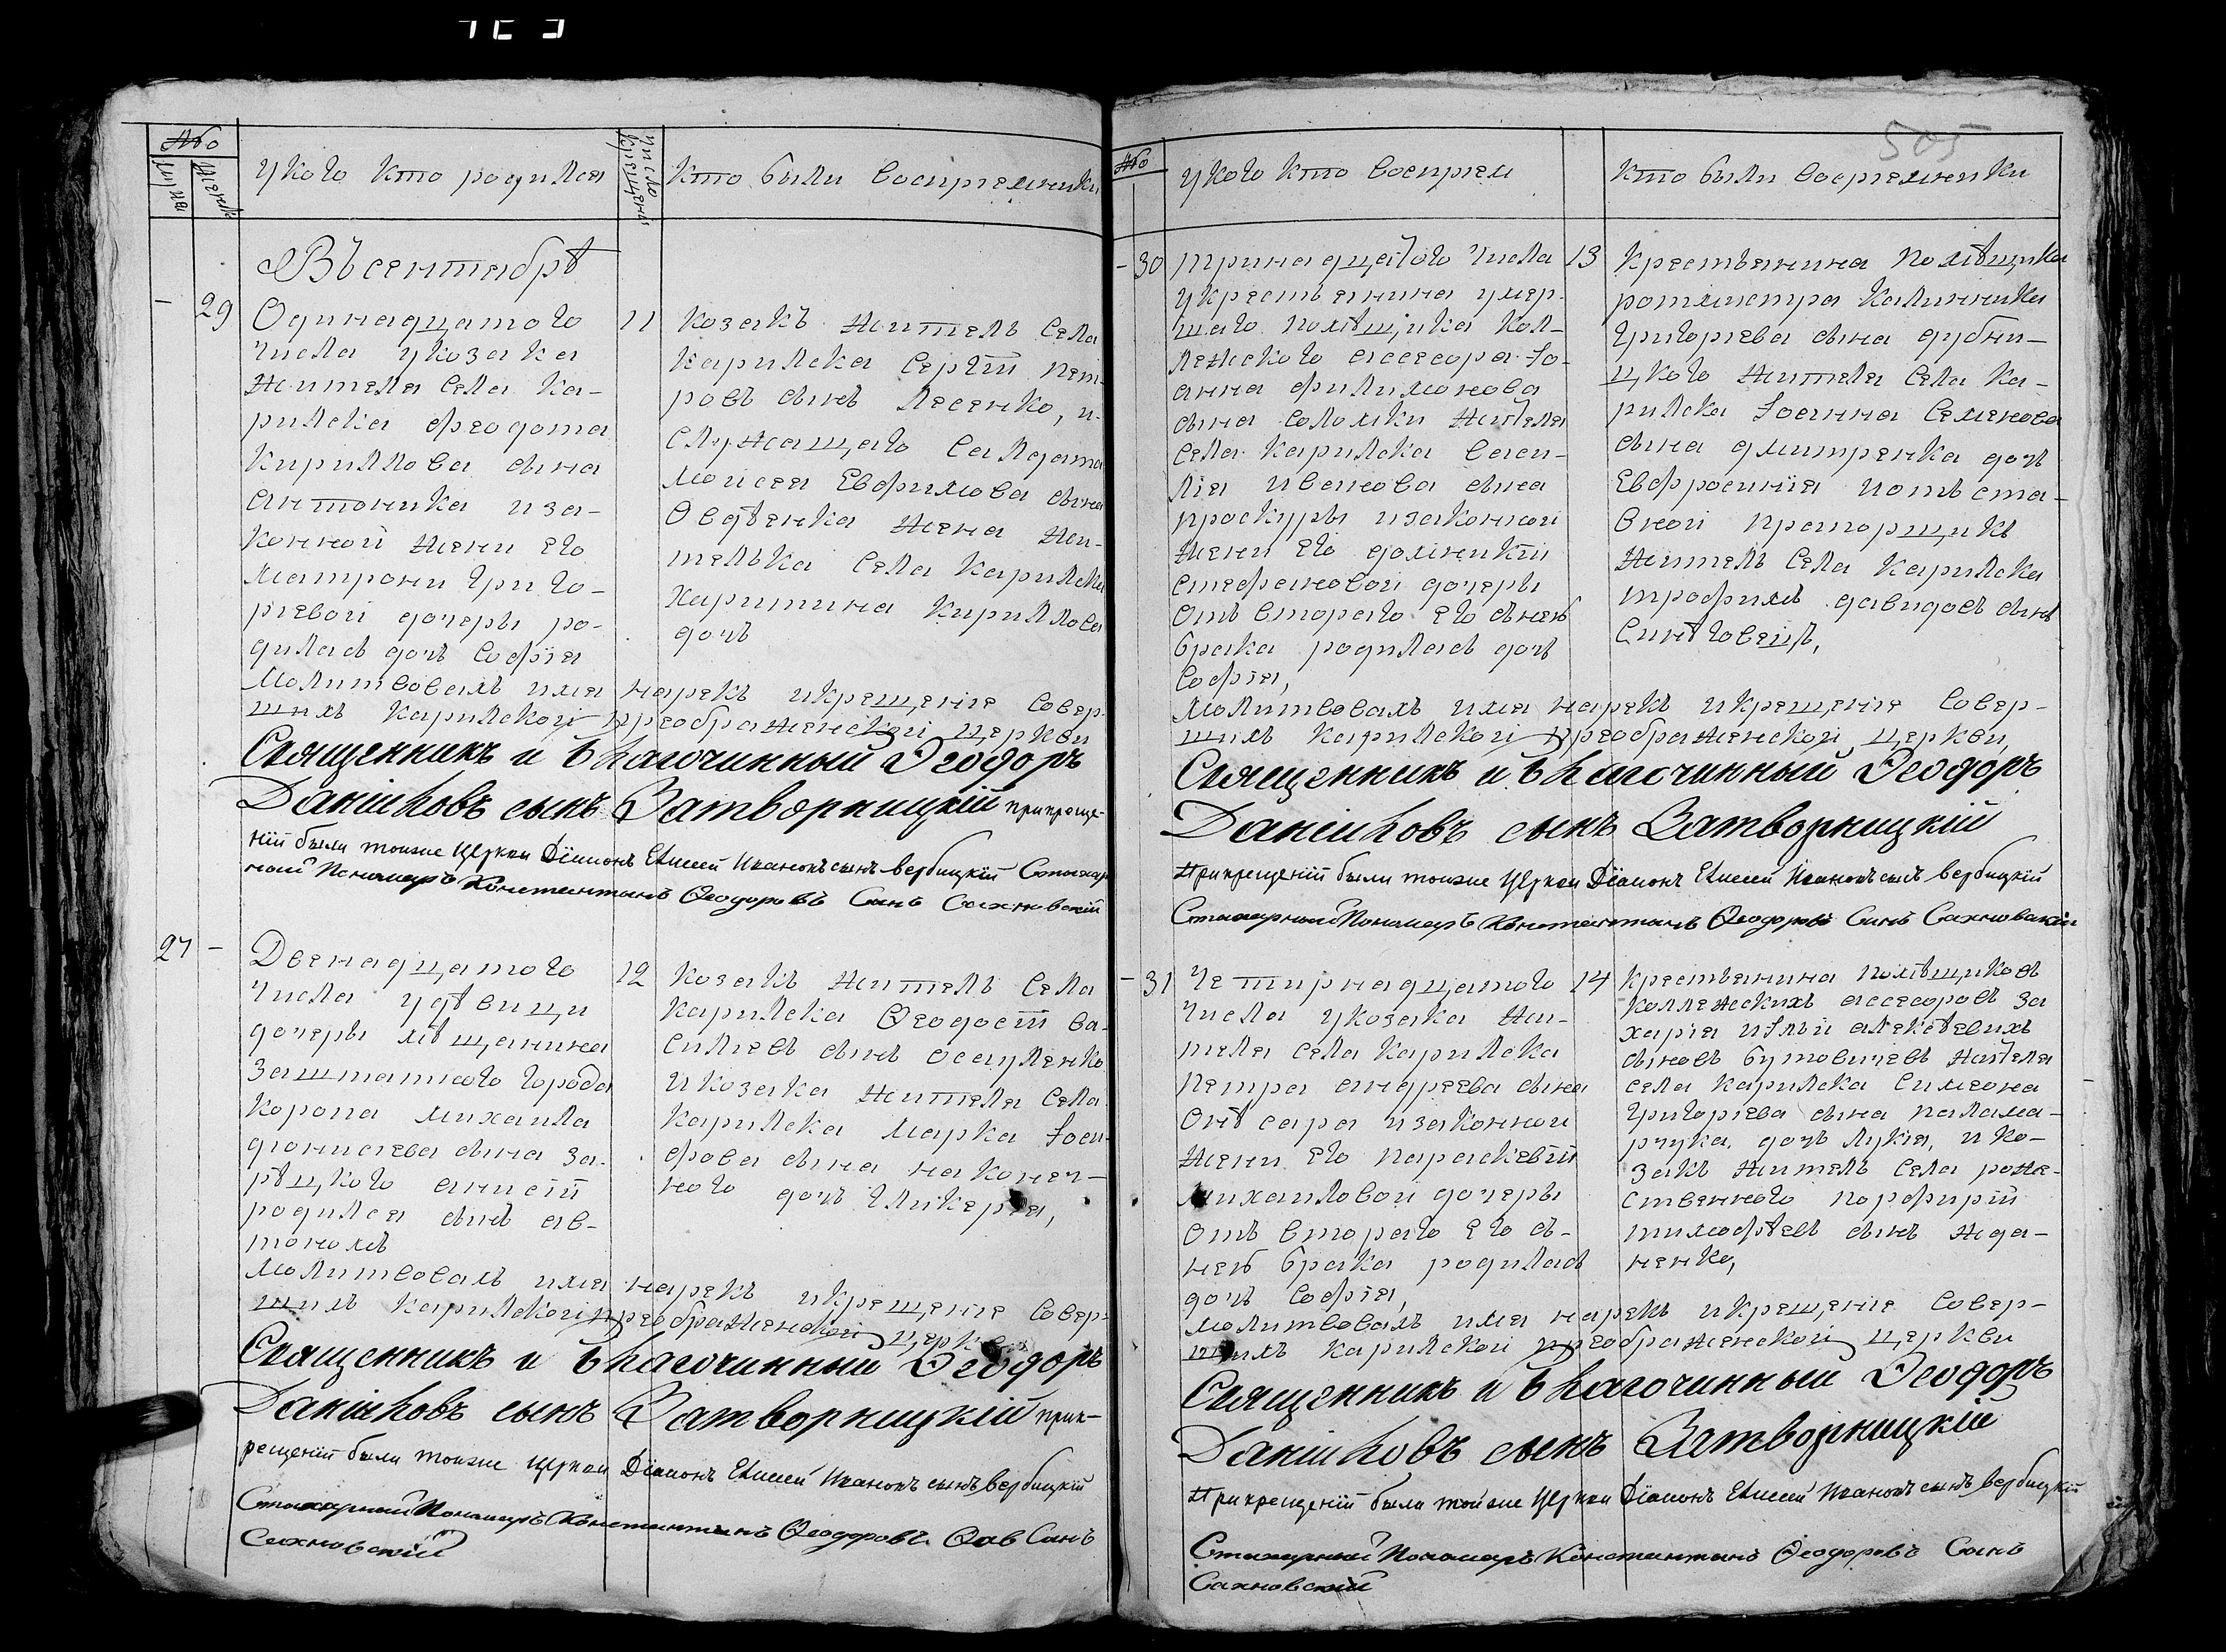 505
№
у кого кто родился
число крещеныя
кто были восприемники
Въ сентябрѣ
29
Одинадцатого
числа у козака
жителя села Ка-
рилска Феодота
Кириллова сына
Антоника и за-
конной жени его
Матрони Григо-
риевой дочеры ро-
дилась дочь София
11
козакъ житель села
Карилска Сергѣй Пет-
ровъ сынъ Лесенко, и
служащаго салдата
Моисея Евфимова сына
Овдѣенка жена жи-
телька села Карилска
Харитина Кириллова
дочь
Молитвовалъ имя нарекъ и крещение совер-
шилъ Карилской преображенской церкви
Священникъ и благочинный Ѳеодоръ
Даниловъ сынъ Затворницкій при креще-
ніи были тоиже церкви Діаконъ Елисей Ивановъ сынъ Вербицкій Стихар
ной Пономаръ Константинъ Ѳеодоровъ Синъ Сахновскій
27
Двенадцатого
числа у дѣвици
дочеры мѣщанина
заштатного города
Коропа Михаила
Дионисиева сына За-
рѣцкого Анисіи
родился сынъ Ав-
тономъ
12
козакъ житель села
Карилска Ѳеодосій Ва-
силиевъ сынъ Осауленко
и козака жителя села
Карилска Марка Иоси-
фова сына Наконеч-
ного дочь Гликерия,
Молитвовалъ имя нарекъ и крещение совер-
шилъ Карилской преображенской церкви
Священникъ и благочинный Ѳеодоръ
Даниловъ сынъ Затворницкій при к-
рещеніи были тоиже церкви Діаконъ Елисей Ивановъ сынъ Вербицкій
Стихарный Пономаръ Константинъ Ѳеодоровъ Синъ
Сахновскій
№
у кого кто восприем
кто были восприемники
30
тринадцатого числа
у крестьянина умер-
шаго помѣщика кол-
лежского ассесора Ио-
анна Филимонова
сына Соломки жителя
села Карилска Васи-
лия Иванова сына
Проскуры и законной
жени его Домникіи
Стефановой дочеры
отъ второго его съ нею
брака родилась дочь
София,
13
крестьянина помѣщика
ротмистра Калинника
Григориева сына Дубни-
цкого жителя села Ка-
рилска Иоанна Семенова
сына Дмитренка дочь
Евфросиния и отъ ста-
вной прапорщикъ
житель села Карилска
Трофимъ Давидовъ сынъ
Синѣговецъ,
Молитвовалъ имя нарекъ и крещение совер-
шилъ Карилской преображенской церкви,
Священникъ и благочинный Ѳеодоръ
Даниловъ сынъ Затворницкій
При крещеніи были тоиже церкви Діаконъ Елисей Ивановъ сынъ Вербицкій
Стихарный Пономаръ Константинъ Ѳеодоровъ Синъ Сахновскій
31
Четирнадцатого
числа у козака жи-
теля села Карилска
Петра Андреева сына
и законной
жени его Параскевіи
Михаиловой дочеры
отъ второго его съ
нею брака родилась
дочь София,
14
крестьянина помѣщиковъ
коллежскихъ ассесоровъ За
хария и Ильи Алексѣевихъ
сыновъ Бутовичевъ жителя
села Карилска Симеона
Григориева сына Палама-
рчука дочь Лукия, и ко-
закъ житель села Рожде-
ственного Порфирій
Тимофѣевъ сынъ Жда-
ненко,
Молитвовалъ имя нарекъ и крещение совер-
шилъ Карилской преображенской церкви
Священникъ и благочинный Ѳеодоръ
Даниловъ сынъ Затворницкій
При крещеніи были тойже церкви Діаконъ Елисей Ивановъ сынъ Вербицкій
Стихарный Пономаръ Константинъ Ѳеодоровъ Синъ
Сахновскій